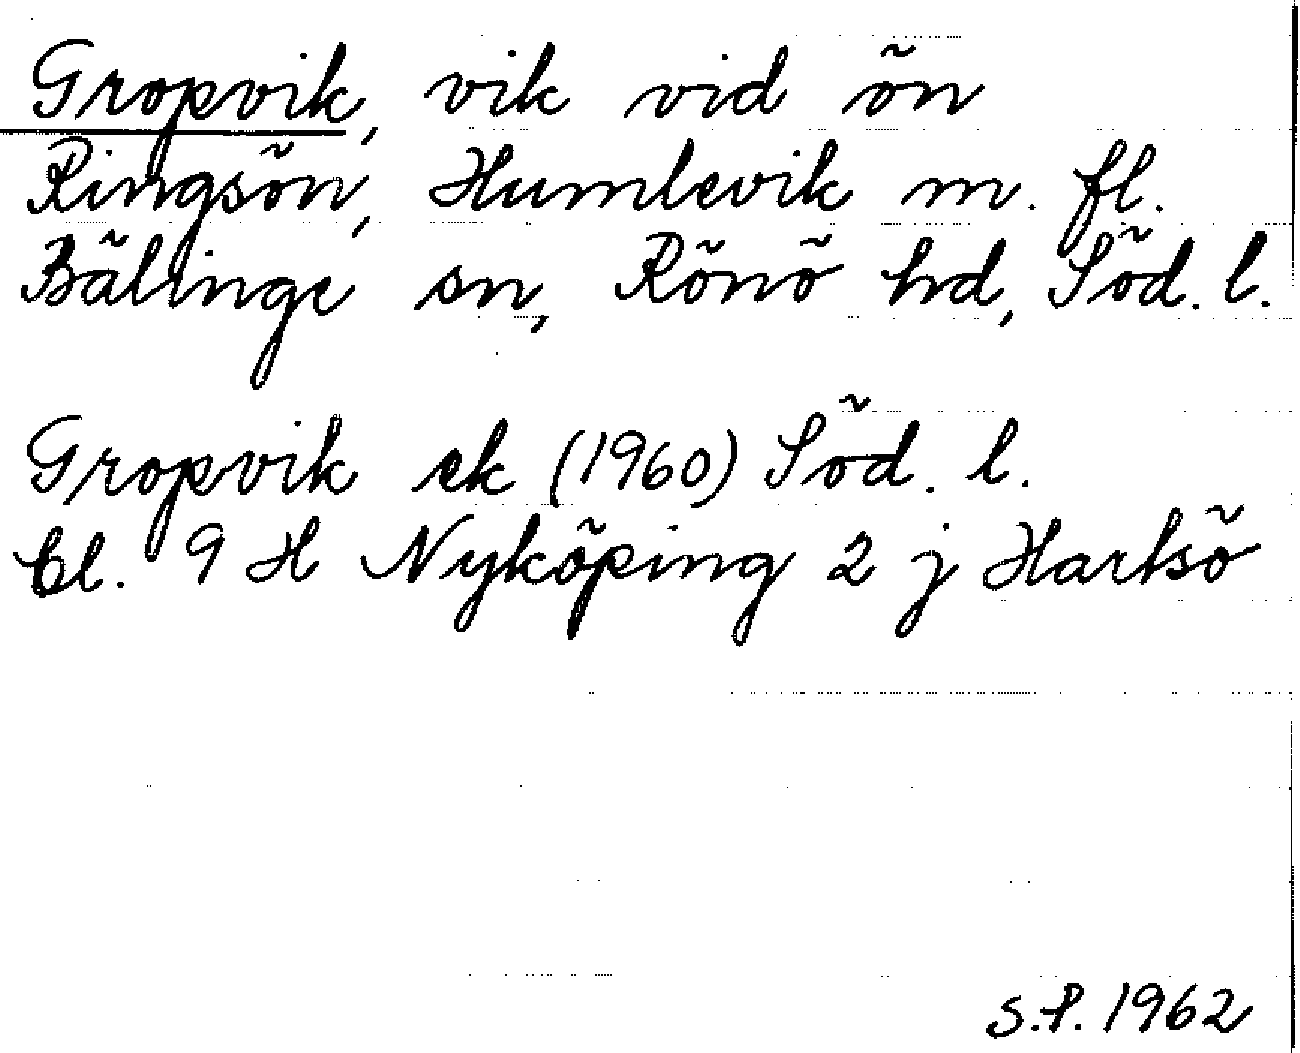 Gropvik, vik vid ön
Ringsön, Humlevik m. fl.
Bälinge sn, Rönö hd, Söd. l.
Gropvik ek (1960) Söd. l.
bl. 9 H Nyköping 2 j Hartsö
S.P. 1962